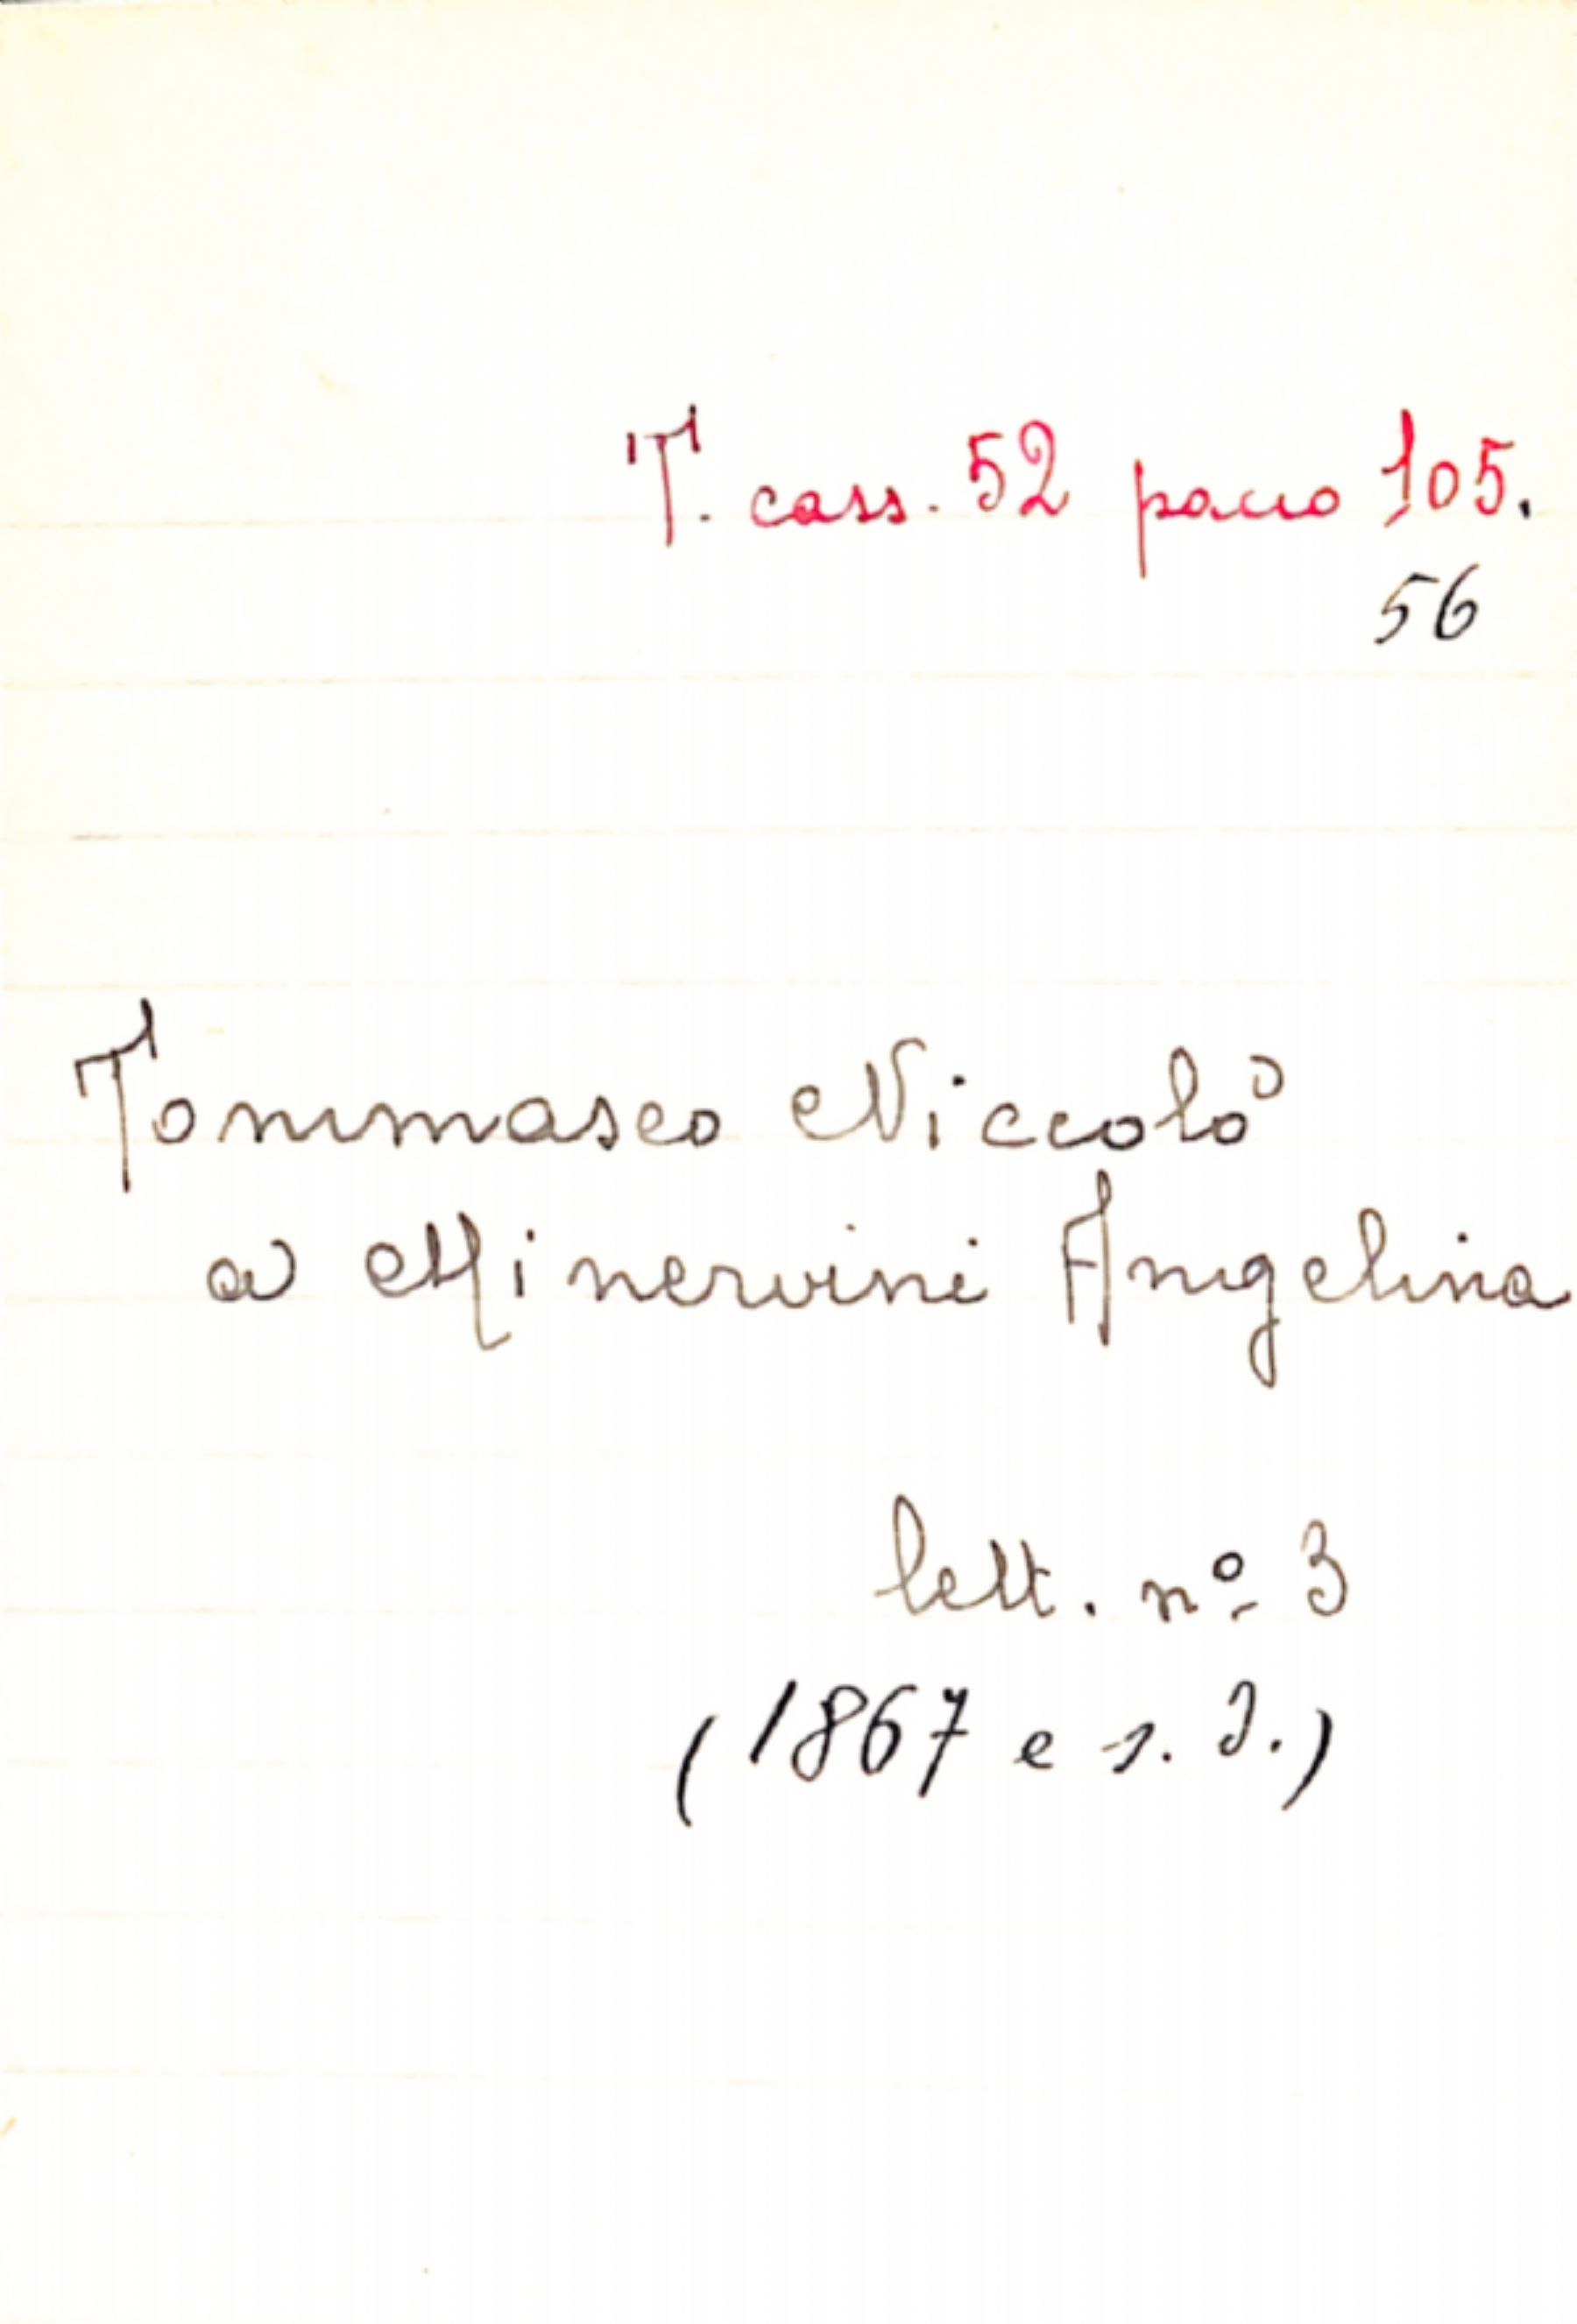 T. cass. 52 pacco 105.
56
Tommaseo Niccolò
a Minervini Angelina
lett. nº 3
(1867 e s. d.)